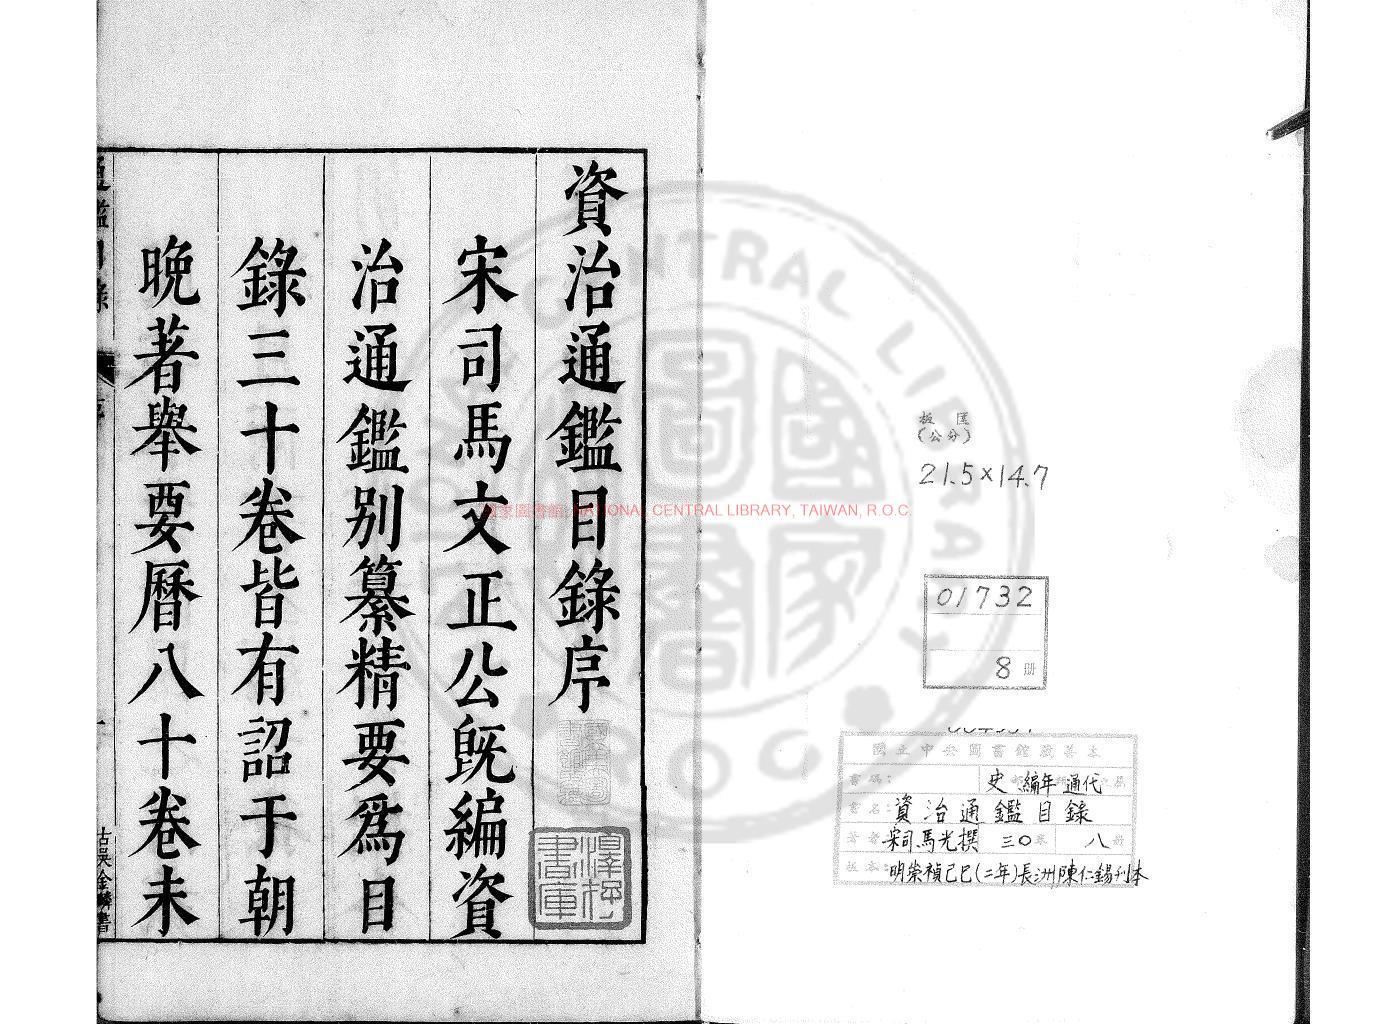 資治通鑑目錄序
宋司馬文正公既編資
治通鑑別纂精要爲目
錄三十卷皆有詔于朝
晩著舉要曆八十卷未
通鑑目錄
序
一
古吳金麟書
書庫
國家圖書館, NATIONAL CENTRAL LIBRARY, TAIWAN, R.O.C.
NATIONAL CENTRAL LIBRARY
R.O.C.
國家圖書館
板 匡
(公分)
21.5×14.7
01732
8 册
國立中央圖書館藏善本
書碼: 史 編年 通代
書名: 資治通鑑目錄
著者 宋司馬光撰 三〇卷 八册
板本: 明崇禎己巳(二年)長洲陳仁錫刊本